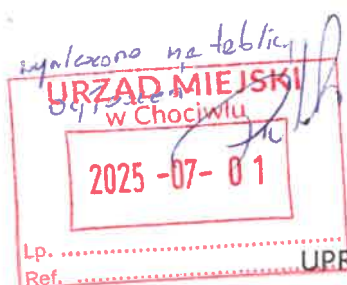 wywieszono na tablicy
ogłoszeń
URZĄD MIEJSKI
w Chociwlu
2025 -07- 01
Lp. ..............................
Ref. .............................. UPR